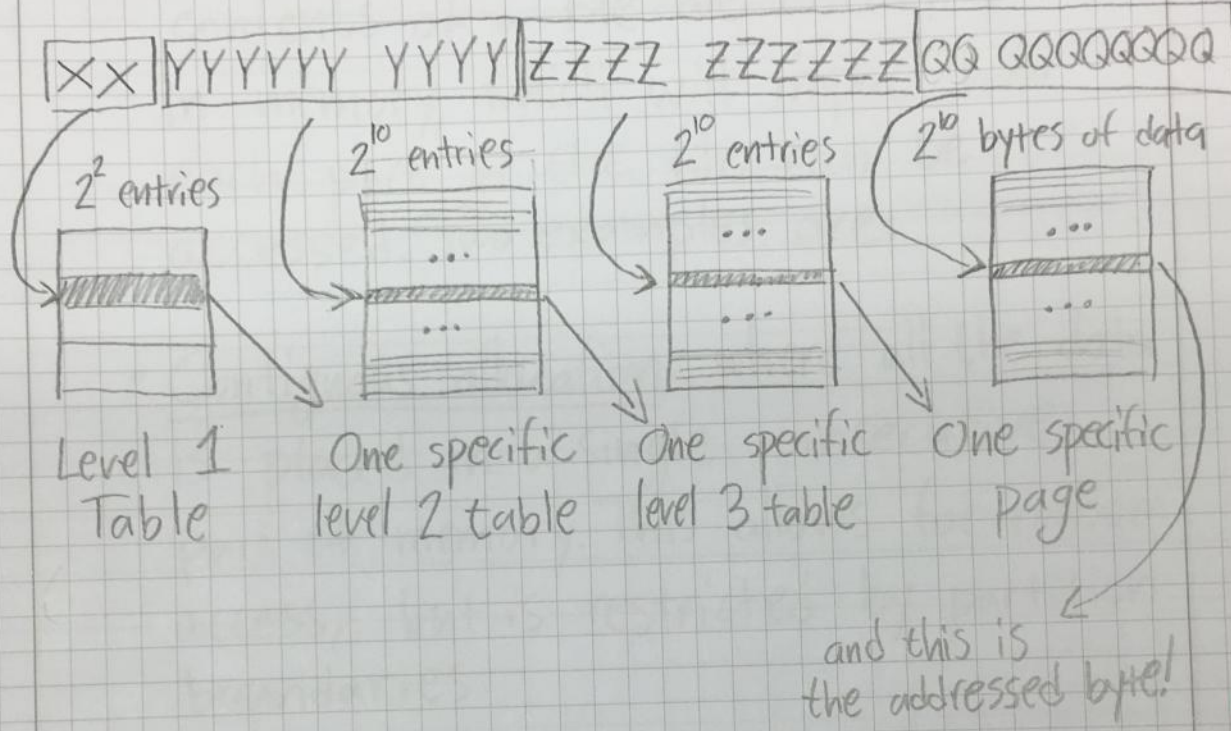 XX YYYYYY YYYY ZZZZ ZZZZZZ QQ QQQQQQQQ
2² entries
2¹⁰ entries
2¹⁰ entries
2¹⁰ bytes of data
...
...
...
...
...
...
Level 1
Table
One specific
level 2 table
One specific
level 3 table
One specific
page
and this is
the addressed byte!